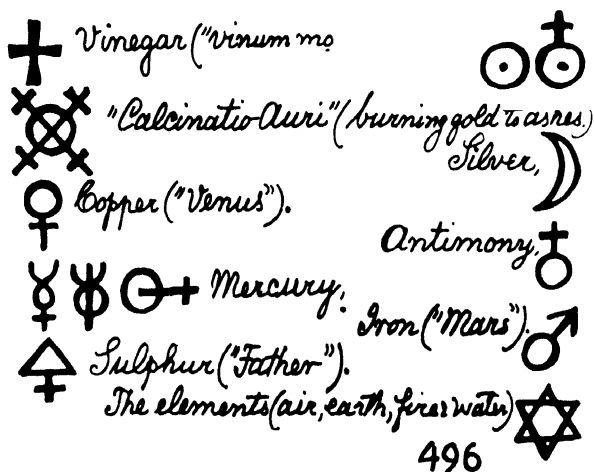 Vinegar ("vinum mo
"Calcinatio Auri" (burning gold to ashes.)
Silver,
Copper ("Venus").
Antimony,
Mercury.
Iron ("Mars").
Sulphur ("Father").
The elements (air, earth, fire & water)
496